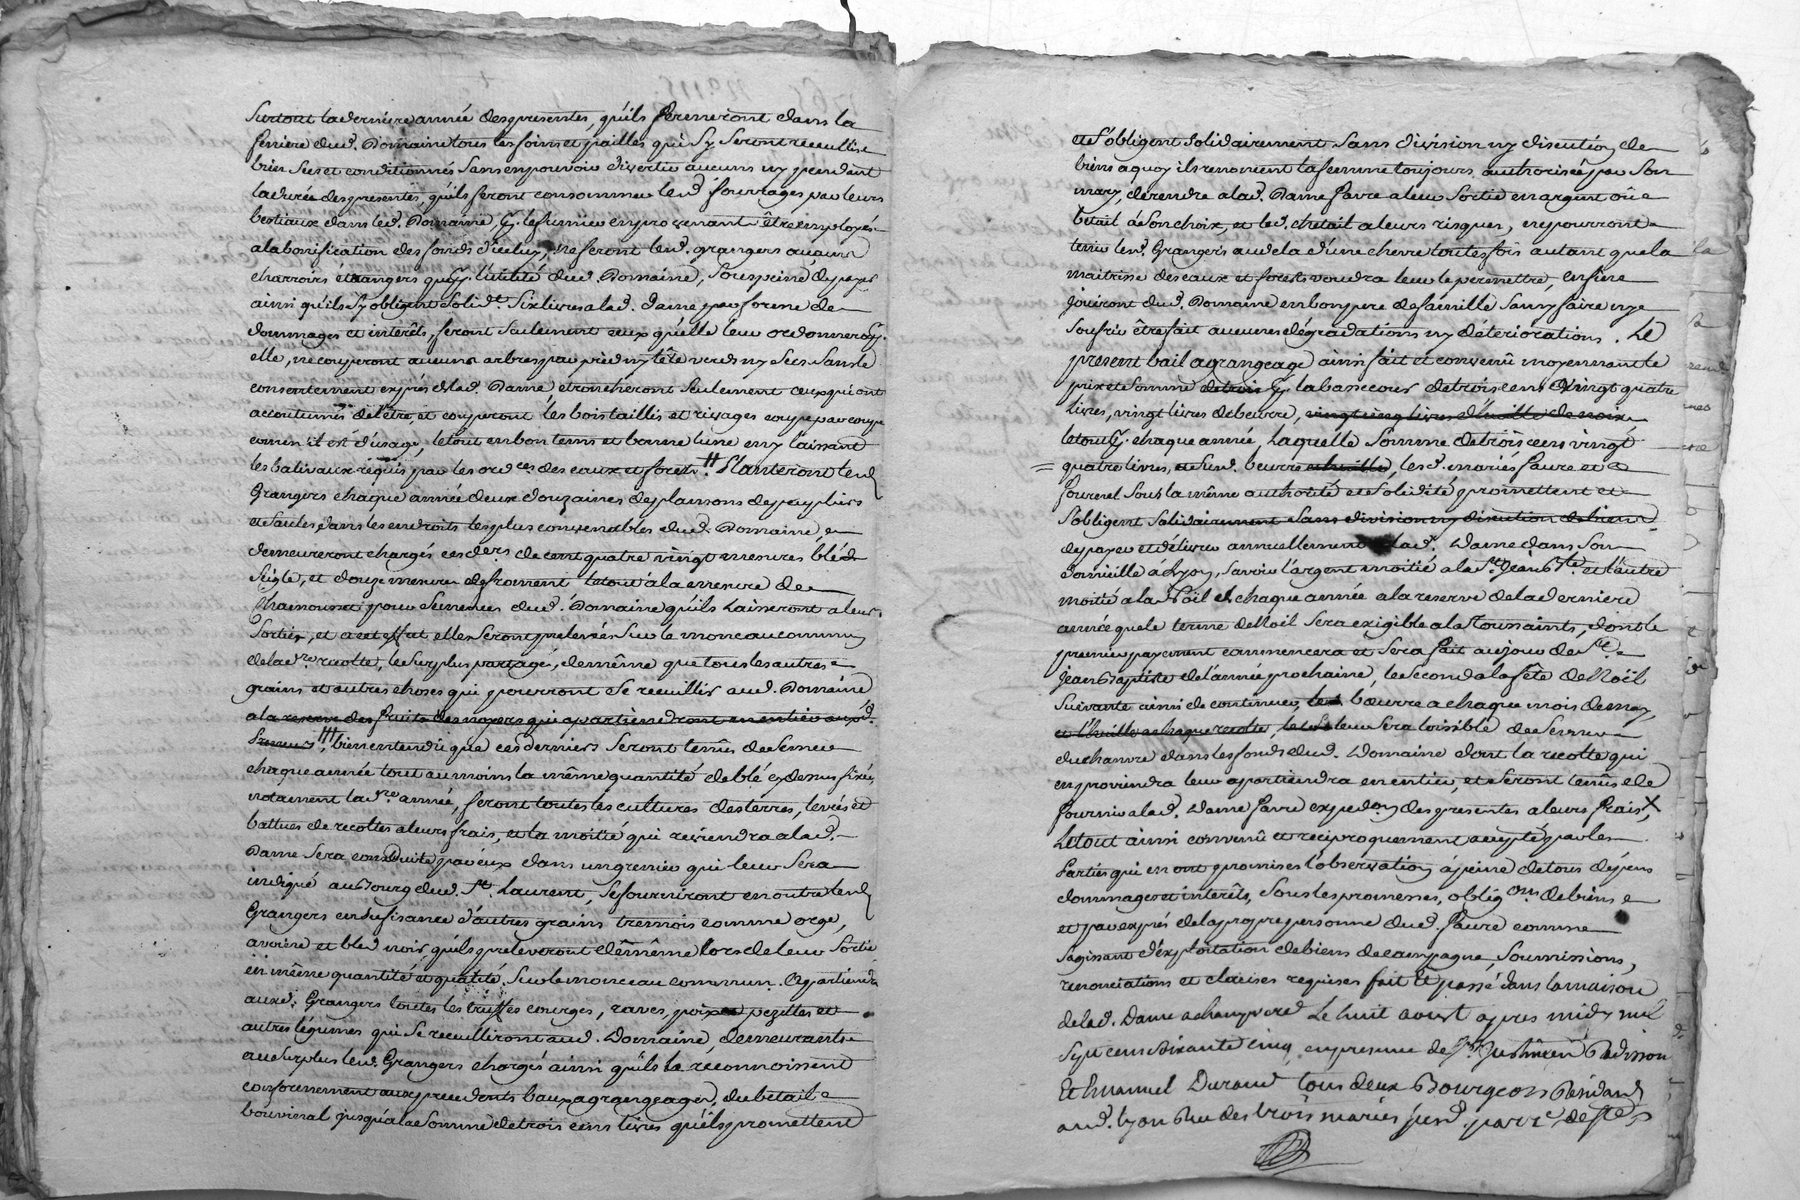 Surtout la derniere année des presentes, qu'ils fermeront dans la
feniere dud. Domaine tous les foins et pailles qui s'y seront recueillis
bien secs et conditionnés sans en pouvoir divertir aucuns ny pendant
la durée des presentes, qu'ils feront consommer lesd. fourrages par leurs
bestiaux dans led. Domaine, les fumiers en provenant être employés
a la bonification des fonds d'icelluy, ne feront lesd. grangers aucuns
charrois étrangers que pr. l'utilité dud. Domaine, sous peine de payer
ainsi qu'ils s'y obligent solidt. six livres a lad. dame par forme de
dommages et interêts, feront seulement ceux qu'elle leur ordonnera pr.
elle, ne couperont aucuns arbres par pied ny tête verds ny secs sans le
consentement exprès de lad. Dame etroncheront seulement ceux qui ont
accoutumés de l'être, et couperont les bois taillis et rivages coupe par coupe
comm'il est d'usage, le tout en bon tems et bonne lune en y laissant
les balivaux requis par les ordces des eaux et forets. Planteront lesd.
Grangers chaque année deux douzaines de plansons de peupliers
et saules dans les endroits les plus convenables dud. Domaine,
demeureront chargés ces ders de cent quatre vingt mesures bléd
seigle, et douze mesures de froment le tout a la mesure de
Chamousset pour semences dud. Domaine qu'ils laisseront a leur
sortie, et a cet effet elles seront prelevées sur le monceau commun
de la dre recolte, le surplus partagé, de même que tous les autres
grains et autres choses qui pourront se recueillir aud. Domaine
a la reserve des fruits des noyers qui apartiendront en entier auxd.
Preneurs bien entendu que ces derniers seront tenus de semer
chaque année tout au moins la même quantité de blé cy dessus fixée,
notament la dre année, feront toutes les cultures des terres, levées et
battues de recoltes a leurs frais, et la moitié qui reviendra a lad.
Dame sera conduite par eux dans un grenier qui leur sera
indiqué au Bourg dud. St. Laurent, se fourniront en outre lesd.
Grangers en sufisance d'autres grains tremois comme orge,
avoine et bled noir, qu'ils preleveront de même lors de leur sortie
en même quantité et qualité sur le monceau commun. Apartiendra
auxd. Grangers toutes les truffes courges, raves, poix pezilles et
autres légumes qui se recueilliront aud. Domaine, demeurants
au surplus lesd. Grangers chargés ainsi qu'ils le reconnoissent
conformement aux precedents baux a grangeages, du betail
bouvinal jusqu'a la somme de trois cens livres qu'ils promettent
et s'obligent solidairement sans division ny discution de
biens a quoy ils renoncent la femme toujours authorisée par son
mary, de rendre a lad. Dame Favre a leur sortie en argent où
betail à son choix, et led. chetail a leurs risques, ne pourront
tenir lesd. Grangers au dela d'une chevre toutes fois autant que la
maitrise des eaux et forets voudra leur le permettre, enfin
jouiront dud. Domaine en bon pere de famille sans y faire ny
soufrir être fait aucunes dégradations ny déteriorations. Le
present bail a grangeage ainsi fait et convenû moyennant le
prix et somme de trois pr. la basse cour de trois cens vingt quatre
livres, vingt livres de beurre, vingt cinq livres d'huille de noix
le tout pr. chaque année, laquelle somme de trois cens vingt
= quatre livres, et lesd. beurre et huille, lesd. mariés Faure et
Fournel sous la même authorité et solidité promettent et
s'obligent solidairement sans division ny discution de biens
de payer et délivrer annuellement a lad. Dame dans son
domicille à Lyon, savoir l'argent moitié a la St. Jean Bte. et l'autre
moitié a la Noël de chaque année a la reserve de la derniere
année que le terme de Noël sera exigible a la Toussaints, dont le
premier payement commencera et sera fait au jour de St.
Jean Baptiste de l'année prochaine, le second a la fête de Noël
suivante ainsi de continuer, les beurre a chaque mois de may,
et l'huille a chaque recolte, leur sera loisible de semer
du chanvre dans les fonds dud. Domaine dont la recolte qui
en proviendra leur apartiendra en entier, et seront tenus de
fournir a lad. Dame Favre expedon. des presentes a leurs frais X,
Le tout ainsi convenû et reciproquement accepté par les
Parties qui en ont promises l'observation à peine de tous dépens
dommages et interêts, sous les promesses, obligons. de biens
et par exprès de la propre personne dud. Faure comme
s'agissant d'éxploitation de biens de campagne, soumissions,
renonciations et clauses requises fait et passé dans la maison
de lad. Dame a Le huit aoust apres midy mil
sept cens soixante cinq, en presence de
Et hmanuel Durand tous deux Bourgeois residans
aud. Lyon Rue des trois maries